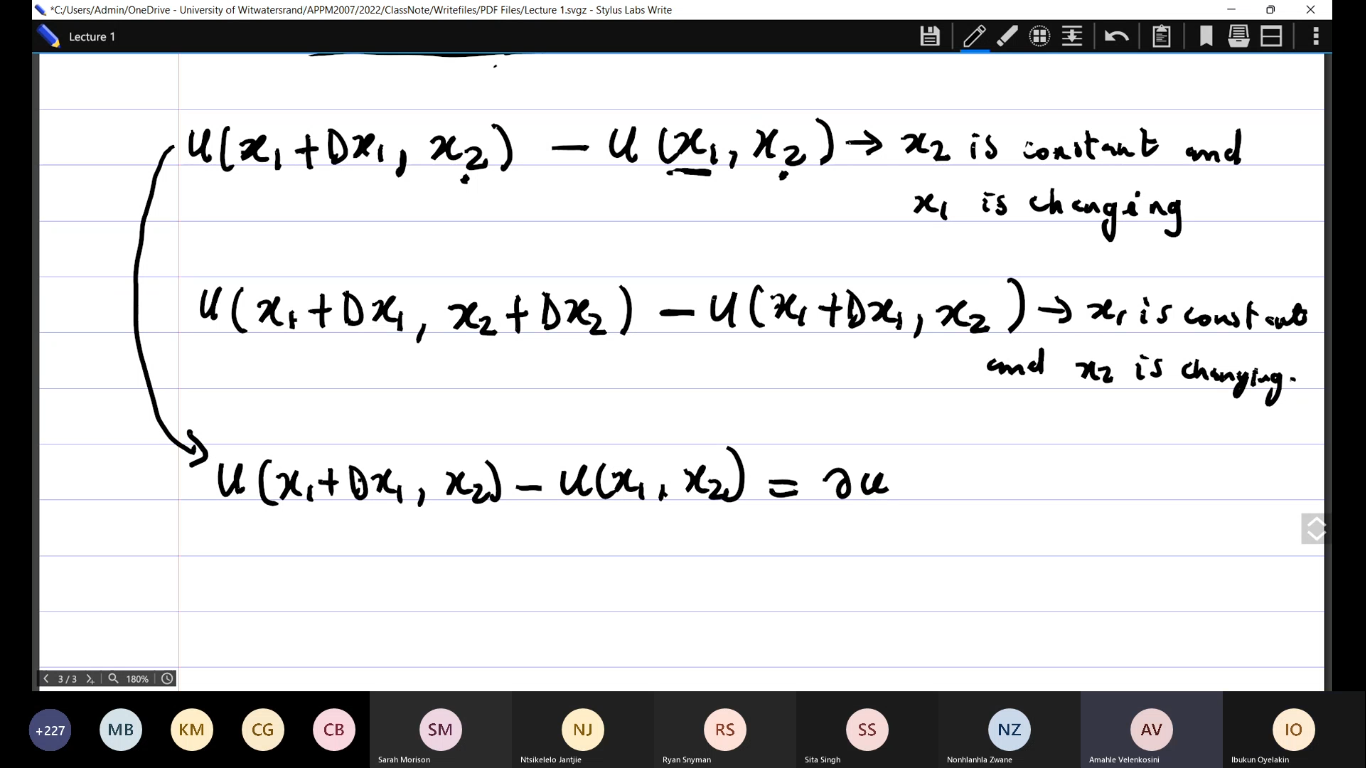 *C:/Users/Admin/OneDrive - University of Witwatersrand/APPM2007/2022/ClassNote/Writefiles/PDF Files/Lecture 1.svgz - Stylus Labs Write
Lecture 1
u(x₁+Dx₁, x₂) - u(x₁, x₂) → x₂ is constant and
x₁ is changing
u(x₁+Dx₁, x₂+Dx₂) - u(x₁+Dx₁, x₂) → x₁ is constant
and x₂ is changing.
u(x₁+Dx₁, x₂) - u(x₁, x₂) = ∂u
3/3 180%
+227 MB KM CG CB SM NJ RS SS NZ AV IO
Sarah Morison Ntsikelelo Jantjie Ryan Snyman Sita Singh Nonhlanhla Zwane Amahle Velenkosini Ibukun Oyelakin